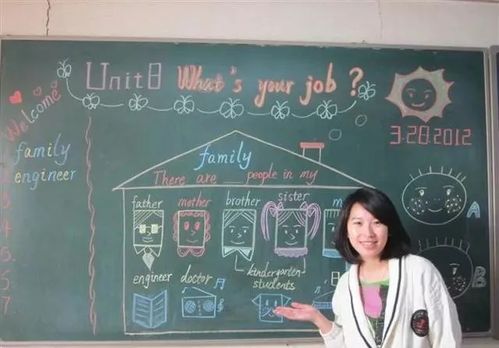 Unit8 What's your job ?
Welcome
family
engineer
3.28.2012
family
There are people in my
father mother brother sister m
A
B
engineer doctor kindergarten
students
5
6
7